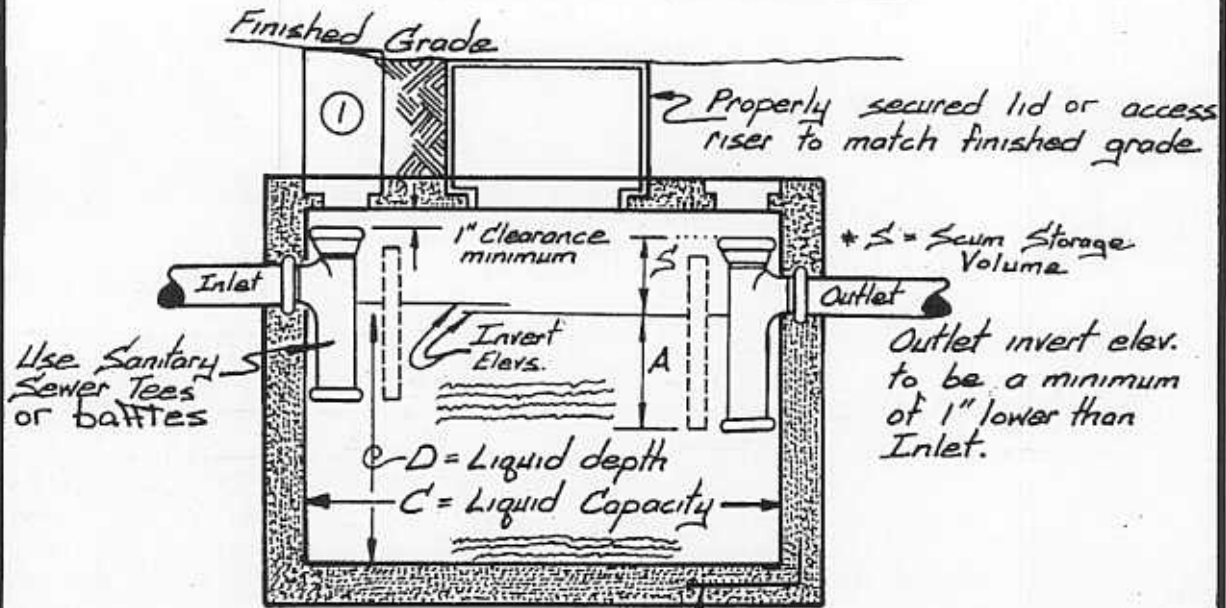 Finished Grade
1
Properly secured lid or access
riser to match finished grade
1" Clearance
minimum
S
* S = Scum Storage
Volume
Inlet
Outlet
Invert
Elevs.
A
Use Sanitary
Sewer Tees
or baffles
Outlet invert elev.
to be a minimum
of 1" lower than
Inlet.
D = Liquid depth
C = Liquid Capacity